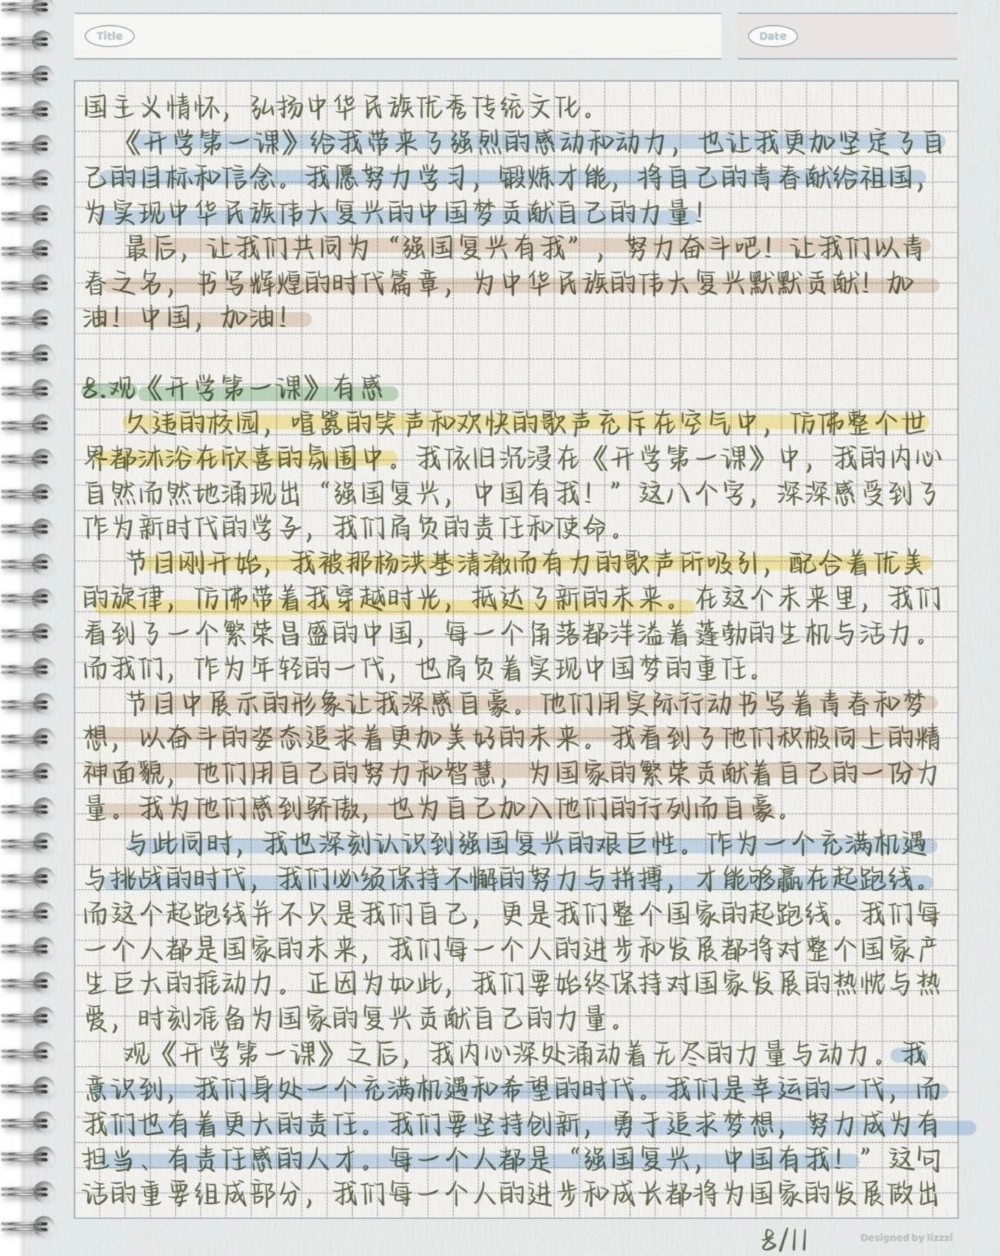 Title
Date
国主义情怀，弘扬中华民族优秀传统文化。
《开学第一课》给我带来了强烈的感动和动力，也让我更加坚定了自
己的目标和信念。我愿努力学习，锻炼才能，将自己的青春献给祖国，
为实现中华民族伟大复兴的中国梦贡献自己的力量！
最后，让我们共同为“强国复兴有我”，努力奋斗吧！让我们以青
春之名，书写辉煌的时代篇章，为中华民族的伟大复兴默默贡献！加
油！中国，加油！
8.观《开学第一课》有感
久违的校园，喧嚣的笑声和欢快的歌声充斥在空气中，仿佛整个世
界都沐浴在欣喜的氛围中。我依旧沉浸在《开学第一课》中，我的内心
自然而然地涌现出“强国复兴，中国有我！”这八个字，深深感受到了
作为新时代的学子，我们肩负的责任和使命。
节目刚开始，我被那杨洪基清澈而有力的歌声所吸引，配合着优美
的旋律，仿佛带着我穿越时光，抵达了新的未来。在这个未来里，我们
看到了一个繁荣昌盛的中国，每一个角落都洋溢着蓬勃的生机与活力。
而我们，作为年轻的一代，也肩负着实现中国梦的重任。
节目中展示的形象让我深感自豪。他们用实际行动书写着青春和梦
想，以奋斗的姿态追求着更加美好的未来。我看到了他们积极向上的精
神面貌，他们用自己的努力和智慧，为国家的繁荣贡献着自己的一份力
量。我为他们感到骄傲，也为自己加入他们的行列而自豪。
与此同时，我也深刻认识到强国复兴的艰巨性。作为一个充满机遇
与挑战的时代，我们必须保持不懈的努力与拼搏，才能够赢在起跑线。
而这个起跑线并不只是我们自己，更是我们整个国家的起跑线。我们每
一个人都是国家的未来，我们每一个人的进步和发展都将对整个国家产
生巨大的推动力。正因为如此，我们要始终保持对国家发展的热忱与热
爱，时刻准备为国家的复兴贡献自己的力量。
观《开学第一课》之后，我内心深处涌动着无尽的力量与动力。我
意识到，我们身处一个充满机遇和希望的时代。我们是幸运的一代，而
我们也有着更大的责任。我们要坚持创新，勇于追求梦想，努力成为有
担当、有责任感的人才。每一个人都是“强国复兴，中国有我！”这句
话的重要组成部分，我们每一个人的进步和成长都将为国家的发展做出
8/11
Designed by lizzzi